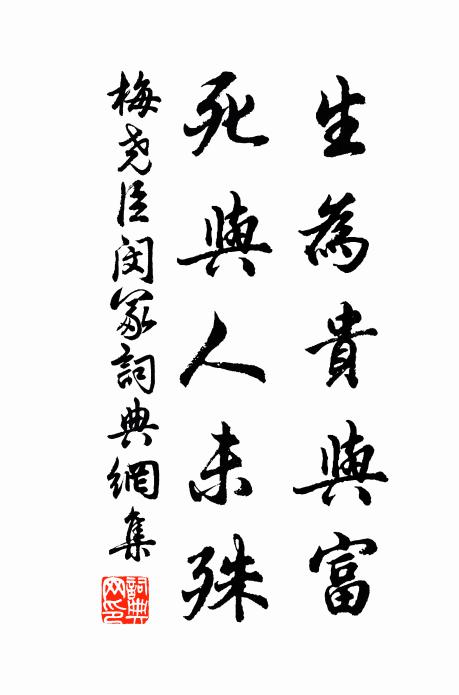 生為貴與富
死與人未殊
梅堯臣閔冢詞典網集
詞典網印